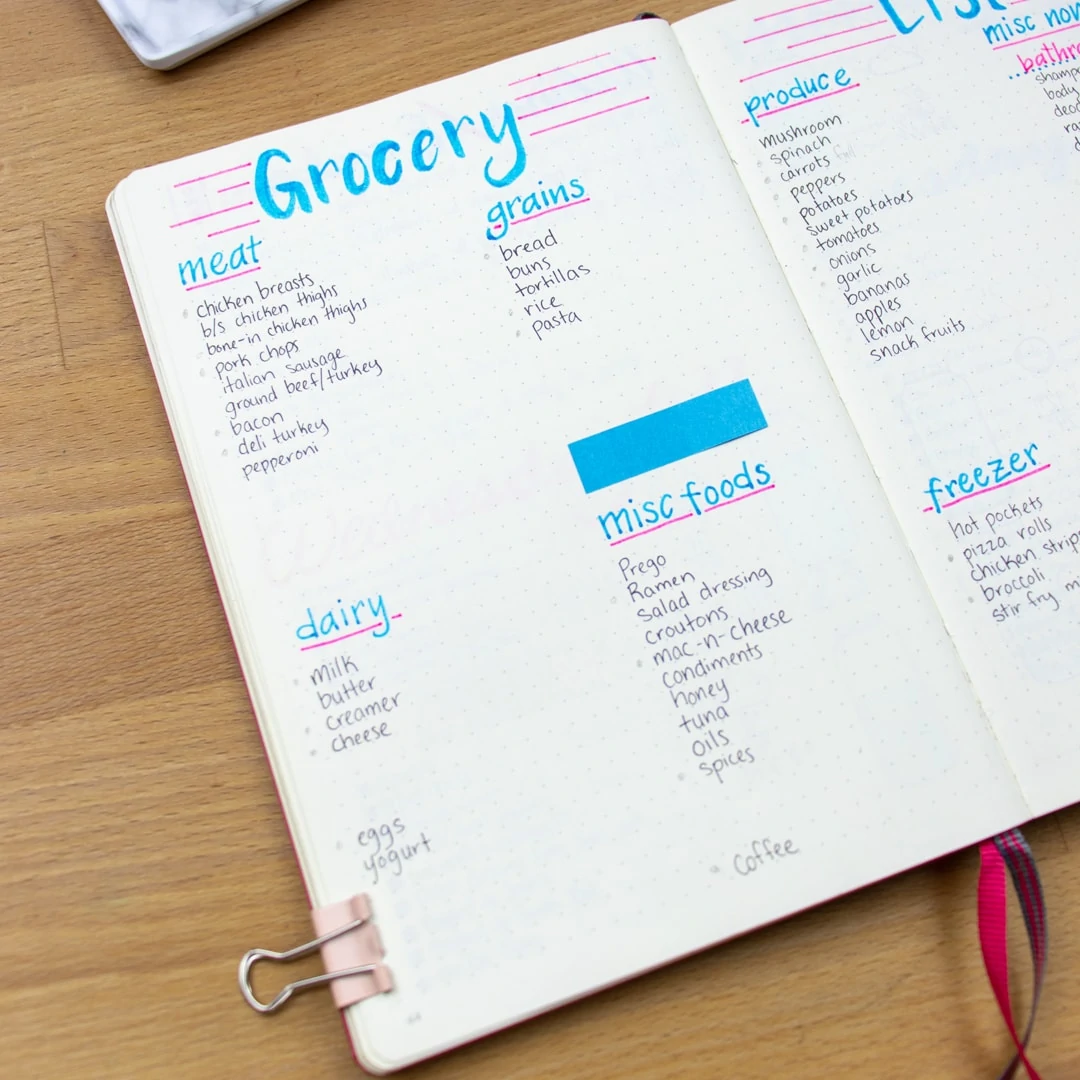 Grocery
meat
chicken breasts
b/s chicken thighs
bone-in chicken thighs
pork chops
italian sausage
ground beef/turkey
bacon
deli turkey
pepperoni
dairy
milk
butter
creamer
cheese
eggs
yogurt
grains
bread
buns
tortillas
rice
pasta
misc foods
Prego
Ramen
salad dressing
croutons
mac-n-cheese
condiments
honey
tuna
oils
spices
coffee
List
produce
mushroom
spinach
carrots
peppers
potatoes
sweet potatoes
tomatoes
onions
garlic
bananas
apples
lemon
snack fruits
freezer
hot pockets
pizza rolls
chicken strip
broccoli
stir fry
misc non
bathro
shamp
body
deo
ra